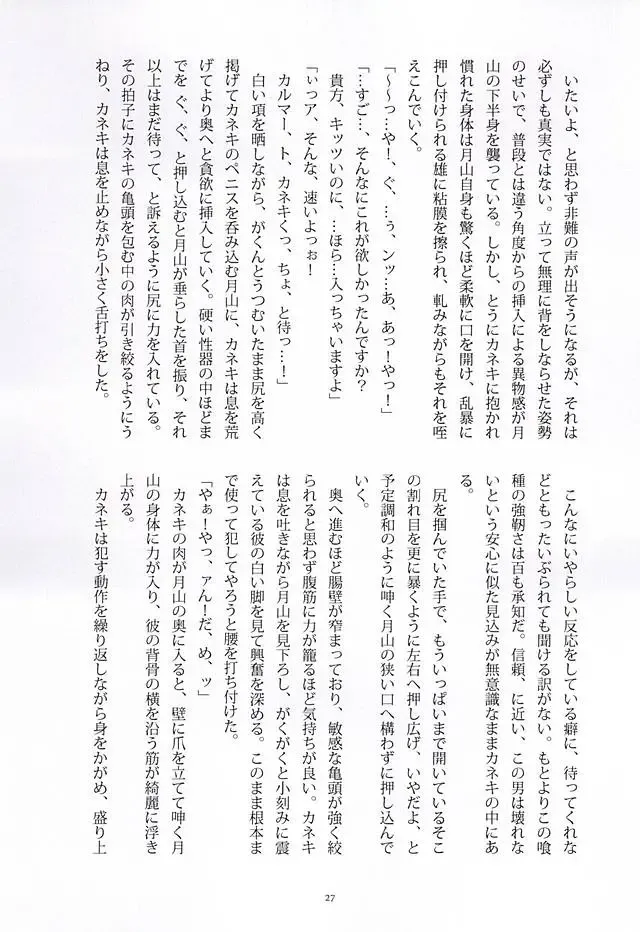 いたいよ、と思わず非難の声が出そうになるが、それは
必ずしも真実ではない。立って無理に背をしならせた姿勢
のせいで、普段とは違う角度からの挿入による異物感が月
山の下半身を襲っている。しかし、とうにカネキに抱かれ
慣れた身体は月山自身も驚くほど柔軟に口を開け、乱暴に
押し付けられる雄に粘膜を擦られ、軋みながらもそれを咥
えこんでいく。
「～～っ…や！、ぐ、…ぅ、ンッ…あ、あっ！やっ！」
「…すご…、そんなにこれが欲しかったんですか？
貴方、キッツいのに、…ほら…入っちゃいますよ」
「ぃっア、そんな、速いよっぉ！
カルマー、ト、カネキくっ、ちょ、と待っ…！」
白い項を晒しながら、がくんとうつむいたまま尻を高く
掲げてカネキのペニスを呑み込む月山に、カネキは息を荒
げてより奥へと貪欲に挿入していく。硬い性器の中ほどま
でを　ぐ、ぐ、と押し込むと月山が垂らした首を振り、それ
以上はまだ待って、と訴えるように尻に力を入れている。
その拍子にカネキの亀頭を包む中の肉が引き絞るようにう
ねり、カネキは息を止めながら小さく舌打ちをした。
こんなにいやらしい反応をしている癖に、待ってくれな
どともったいぶられても聞ける訳がない。もとよりこの喰
種の強靭さは百も承知だ。信頼、に近い、この男は壊れな
いという安心に似た見込みが無意識なままカネキの中にあ
る。
尻を掴んでいた手で、もういっぱいまで開いているそこ
の割れ目を更に暴くように左右へ押し広げ、いやだよ、と
予定調和のように呻く月山の狭い口へ構わずに押し込んで
いく。
奥へ進むほど腸壁が窄まっており、敏感な亀頭が強く絞
られると思わず腹筋に力が籠るほど気持ちが良い。カネキ
は息を吐きながら月山を見下ろし、がくがくと小刻みに震
えている彼の白い脚を見て興奮を深める。このまま根本ま
で使って犯してやろうと腰を打ち付けた。
「やぁ！やっ、ァん！だ、め、ッ」
カネキの肉が月山の奥に入ると、壁に爪を立てて呻く月
山の身体に力が入り、彼の背骨の横を沿う筋が綺麗に浮き
上がる。
カネキは犯す動作を繰り返しながら身をかがめ、盛り上
27